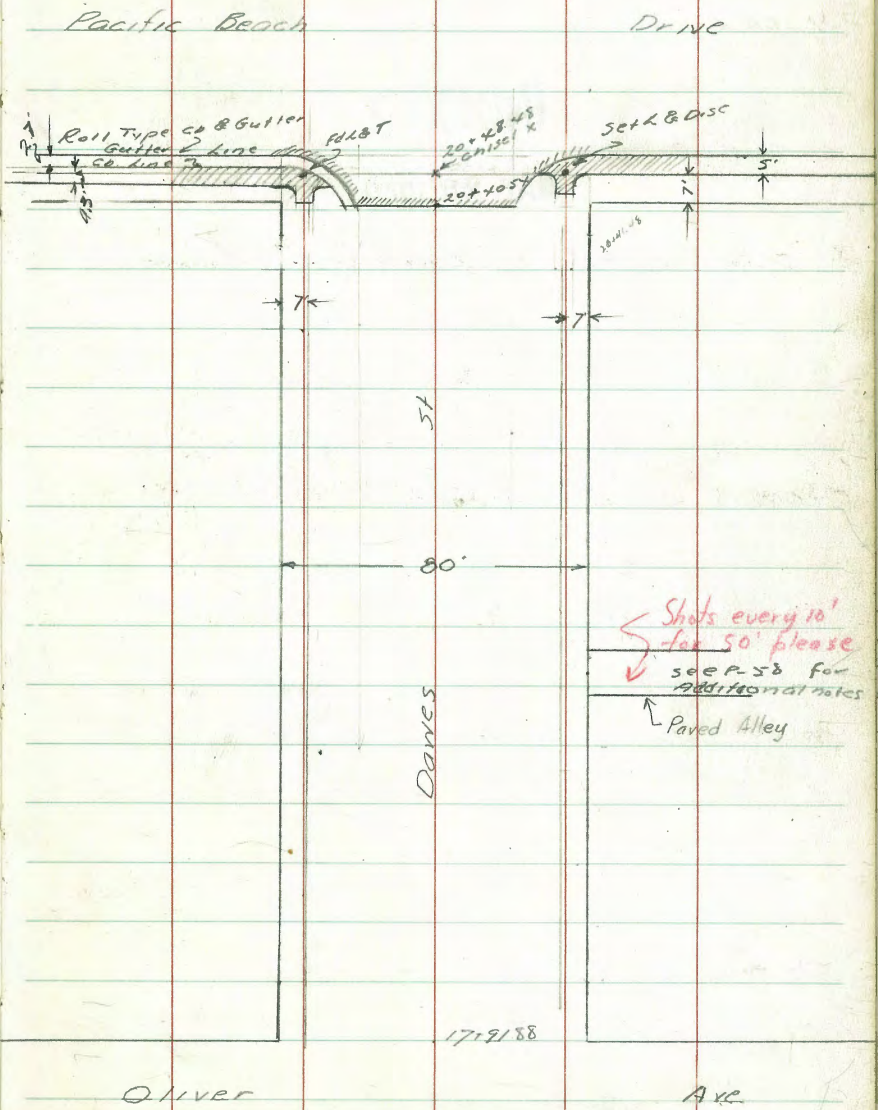 Pacific Beach Drive
Roll Type Cb & Gutter
Gutter Line
Cb Line
4.5'
Fd L & T
20+48.48
Chisel X
Set L & Disc
5'
7'
20+40.54
20+41.48
7'
7'
St
80'
Shots every 10'
for 50' please
see P-58 for
Additional notes
Paved Alley
Dawes
17+91.88
Oliver Ave